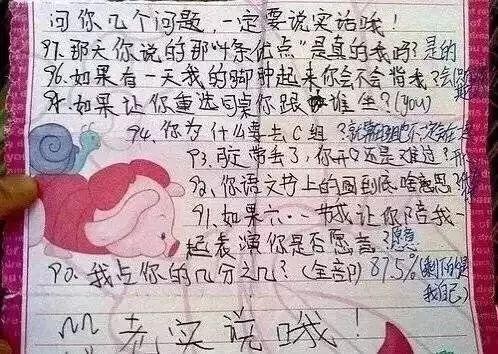 问你几个问题，一定要说实话哦！
97.那天你说的那"4条优点"是真的我吗？是的
96.如果有一天我的脚肿起来你会不会背我？会
95.如果让你重选同桌你跟谁坐？(you)
94.你为什么要去C组？就
93.我带丢了，你开心还是难过？
92.你语文书上的画到底啥意思？
91.如果六·一节我让你陪我一
起表演你是否愿意？愿意
90.我占你的几分之几？(全部) 87.5%(剩下的是
我自己)
老实说哦！